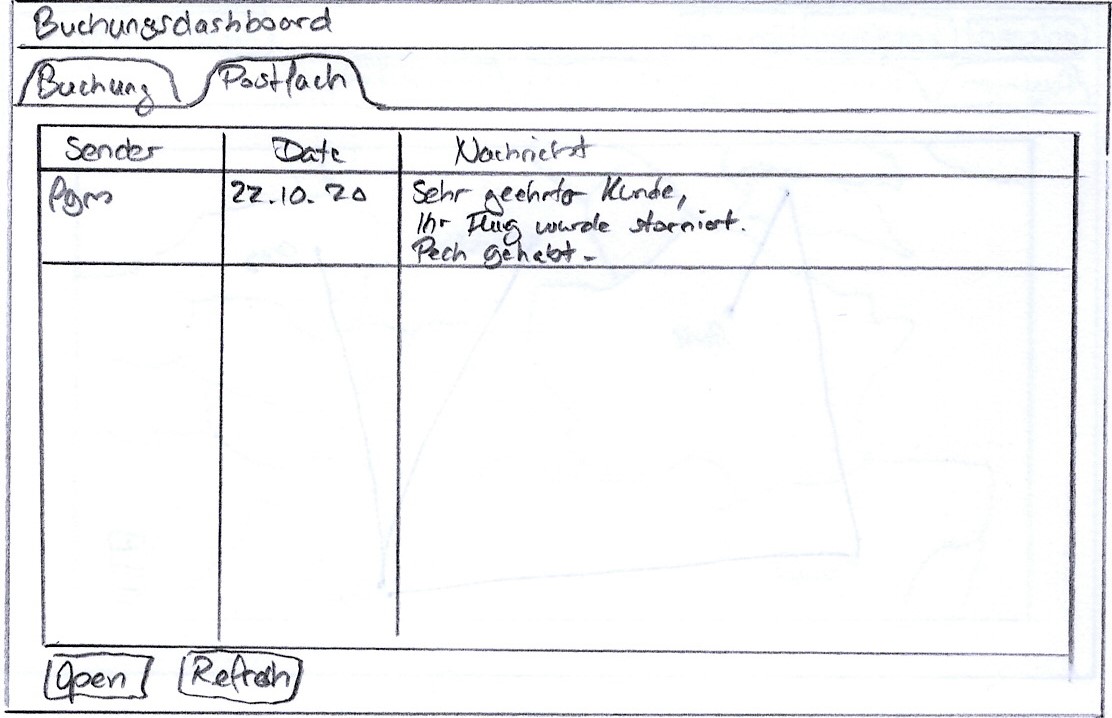 Buchungsdashboard
Buchung Postfach
Sender Date Nachricht
Pgm 22.10.20 Sehr geehrter Kunde,
Ihr Flug wurde storniert.
Pech gehabt.
Open Refresh